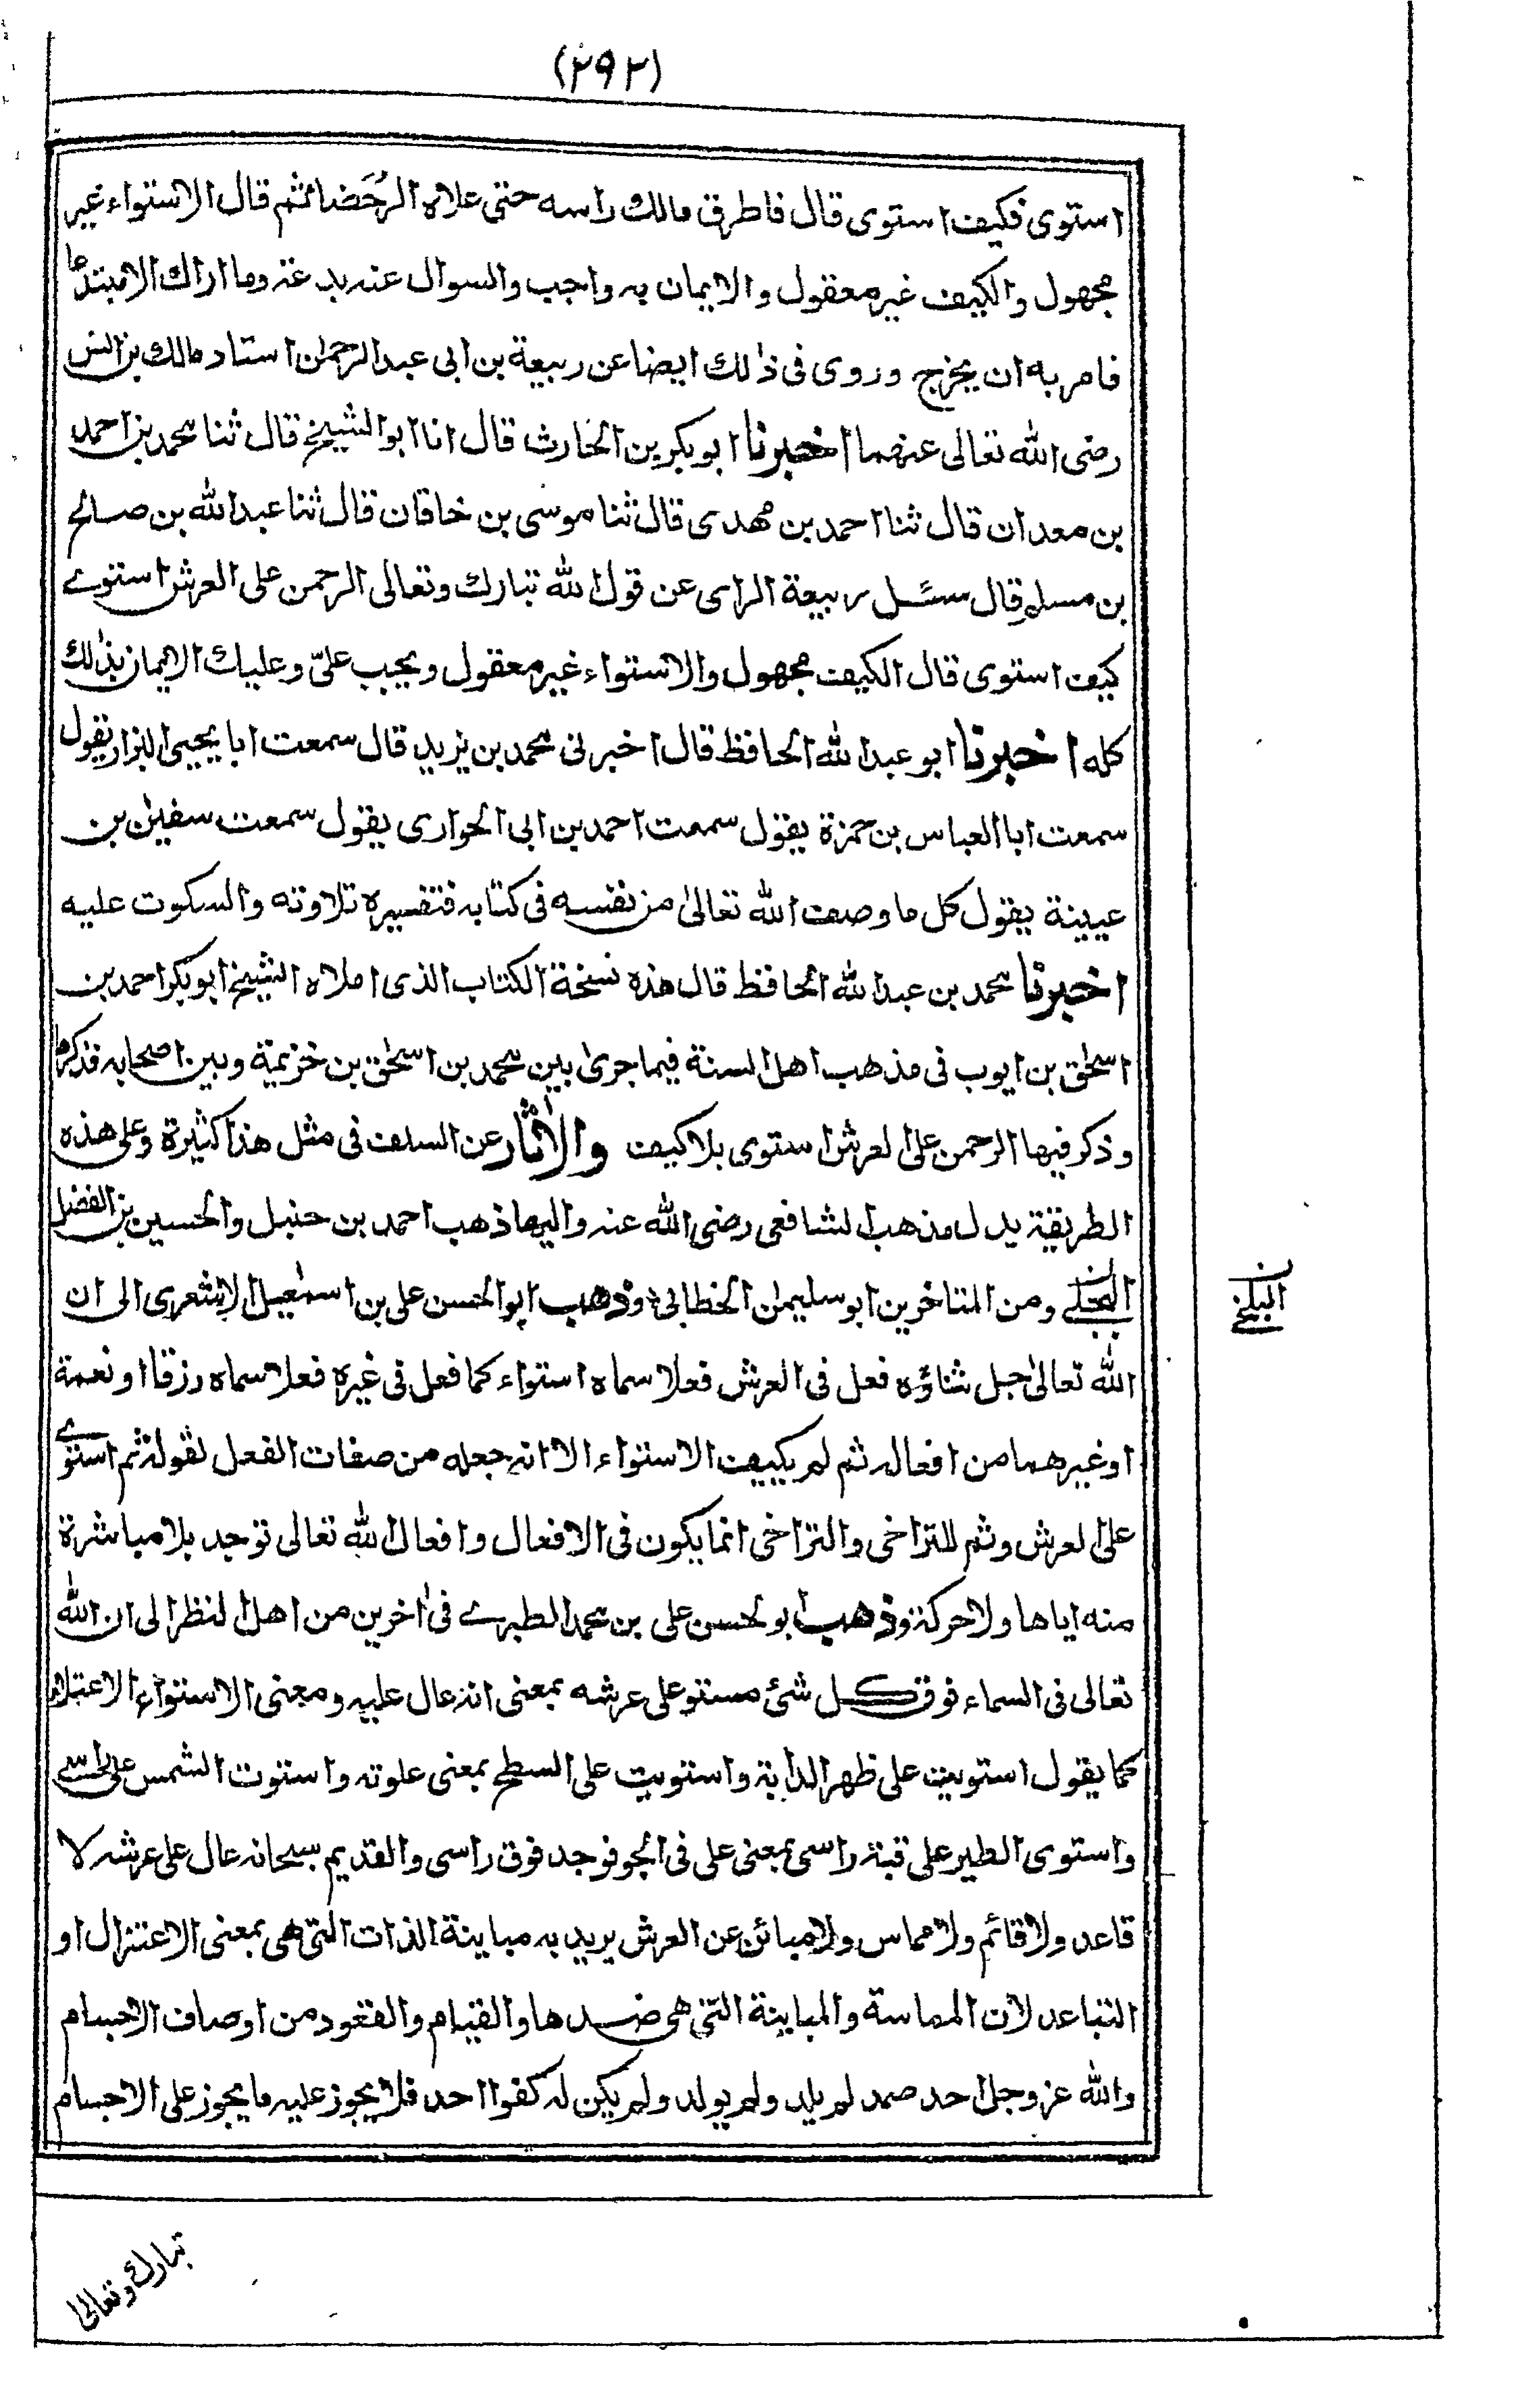 (۲۹۲)
استوى فكيف استوى قال فاطرق مالك راسه حتى علاه الرُحَضاء ثم قال الاستواء غير
مجهول والكيف غير معقول والايمان به واجب والسوال عنه بدعة وما اراك الا مبتدعا
فامر به ان يخرج وروى فى ذٰلك ايضا عن ربيعة بن ابى عبد الرحمٰن استاد مالك بن انس
رضى الله تعالى عنهما اخبرنا ابو بكر بن الحارث قال انا ابو الشيخ قال ثنا محمد بن احمد
بن معدان قال ثنا احمد بن مهدى قال ثنا موسى بن خاقان قال ثنا عبد الله بن صالح
بن مسلم قال سئل ربيعة الراى عن قول الله تبارك وتعالى الرحمن على العرش استوے
كيف استوى قال الكيف مجهول والاستواء غير معقول ويجيب علىّ وعليك الايمان بذٰلك
كله اخبرنا ابو عبد الله الحافظ قال اخبرنى محمد بن يزيد قال سمعت ابا يحيى البزار يقول
سمعت ابا العباس بن حمزة يقول سمعت احمد بن ابى الحوارى يقول سمعت سفيٰن بن
عيينة يقول كل ما وصف الله تعالىٰ من نفسه فى كتابه فتفسيره تلاوته والسكوت عليه
اخبرنا محمد بن عبد الله الحافظ قال هذه نسخة الكتاب الذى املاه الشيخ ابو بكر احمد بن
اسحٰق بن ايوب فى مذهب اهل السنة فيما جرىٰ بين محمد بن اسحٰق بن خزيمة وبين اصحابه فذكرها
وذكر فيها الرحمن على العرش استوى بلا كيف والاٰثار عن السلف فى مثل هذا كثيرة وعلى هذه
الطريقة يدل مذهب الشافعى رضى الله عنه واليها ذهب احمد بن حنبل والحسين بن الفضل
البجلے ومن المتاخرين ابو سليمٰن الخطابى وذهب ابو الحسن على بن اسمٰعيل الاشعرى الى ان
البلخے ن
الله تعالىٰ جل ثناؤه فعل فى العرش فعلا سماه استواء كما فعل فى غيره فعلا سماه رزقا او نعمة
او غيرهما من افعاله ثم لم يكيف الاستواء الا انه جعله من صفات الفعل لقوله ثم استوے
على العرش وثم للتراخى والتراخى انما يكون فى الافعال وافعال الله تعالى توجد بلا مباشرة
منه اياها ولا حركة وذهب ابو الحسن على بن محمد الطبرے فى اٰخرين من اهل النظر الى ان الله
تعالى فى السماء فوق كل شئ مستو على عرشه بمعنى انه عال عليه ومعنى الاستواء الاعتلاء
كما يقول استويت على ظهر الدابة واستويت على السطح بمعنى علوته واستوت الشمس على راسے
واستوى الطير على قبة راسى بمعنى على فى الجو فوجد فوق راسى والقديم سبحانه عال على عرشه لا
قاعد ولا قائم ولا مماس ولا مبائن عن العرش يريد به مباينة الذات التى هى بمعنى الاعتزال او
التباعد لان المماسة والمباينة التى هى ضدها والقيام والقعود من اوصاف الاجسام
والله عز وجل احد صمد لم يلد ولم يولد ولم يكن له كفوا احد فلا يجوز عليه ما يجوز على الاجسام
تبارك وتعالى